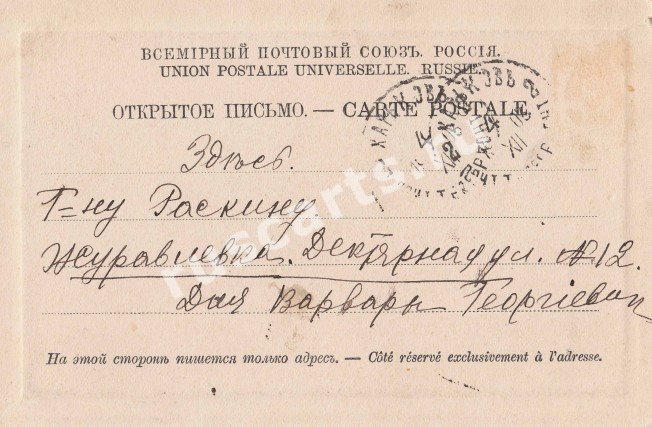 ВСЕМІРНЫЙ ПОЧТОВЫЙ СОЮЗЪ. РОССІЯ.
UNION POSTALE UNIVERSELLE. RUSSIE.
ОТКРЫТОЕ ПИСЬМО. — CARTE POSTALE.
ХАРЬКОВЪ
Здѣсь.
Г=ну Раскину
Журавлевка. Дехтярная ул. №12.
Для Варвары Георгіевн
На этой сторонѣ пишется только адресъ. — Côté réservé exclusivement à l'adresse.
ruscarts.ru